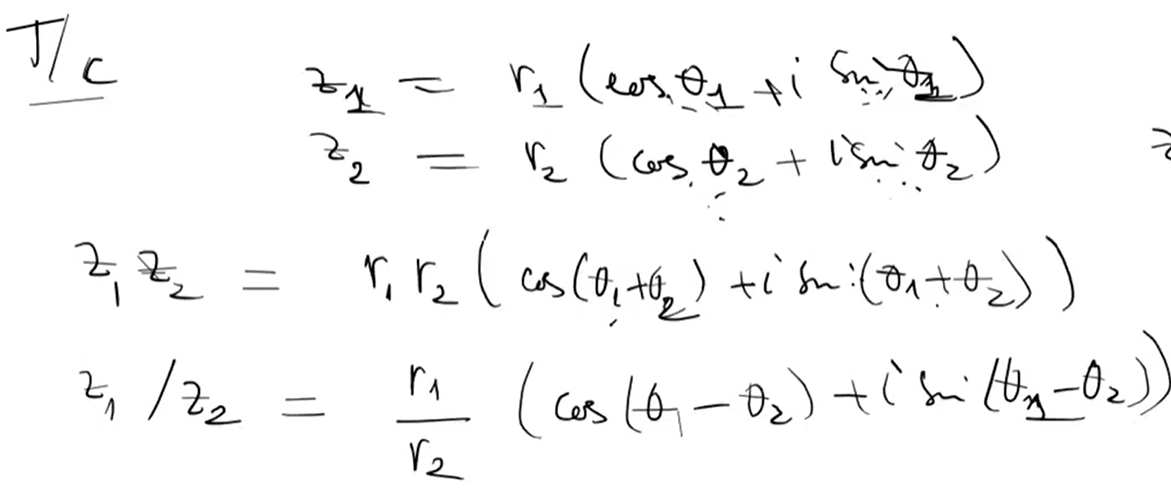 T/c
z₁ = r₁ (cos θ₁ + i sin θ₁)
z₂ = r₂ (cos θ₂ + i sin θ₂)
z₁ z₂ = r₁ r₂ (cos(θ₁+θ₂) + i sin(θ₁+θ₂))
z₁ / z₂ = r₁/r₂ (cos(θ₁ − θ₂) + i sin(θ₁ − θ₂))